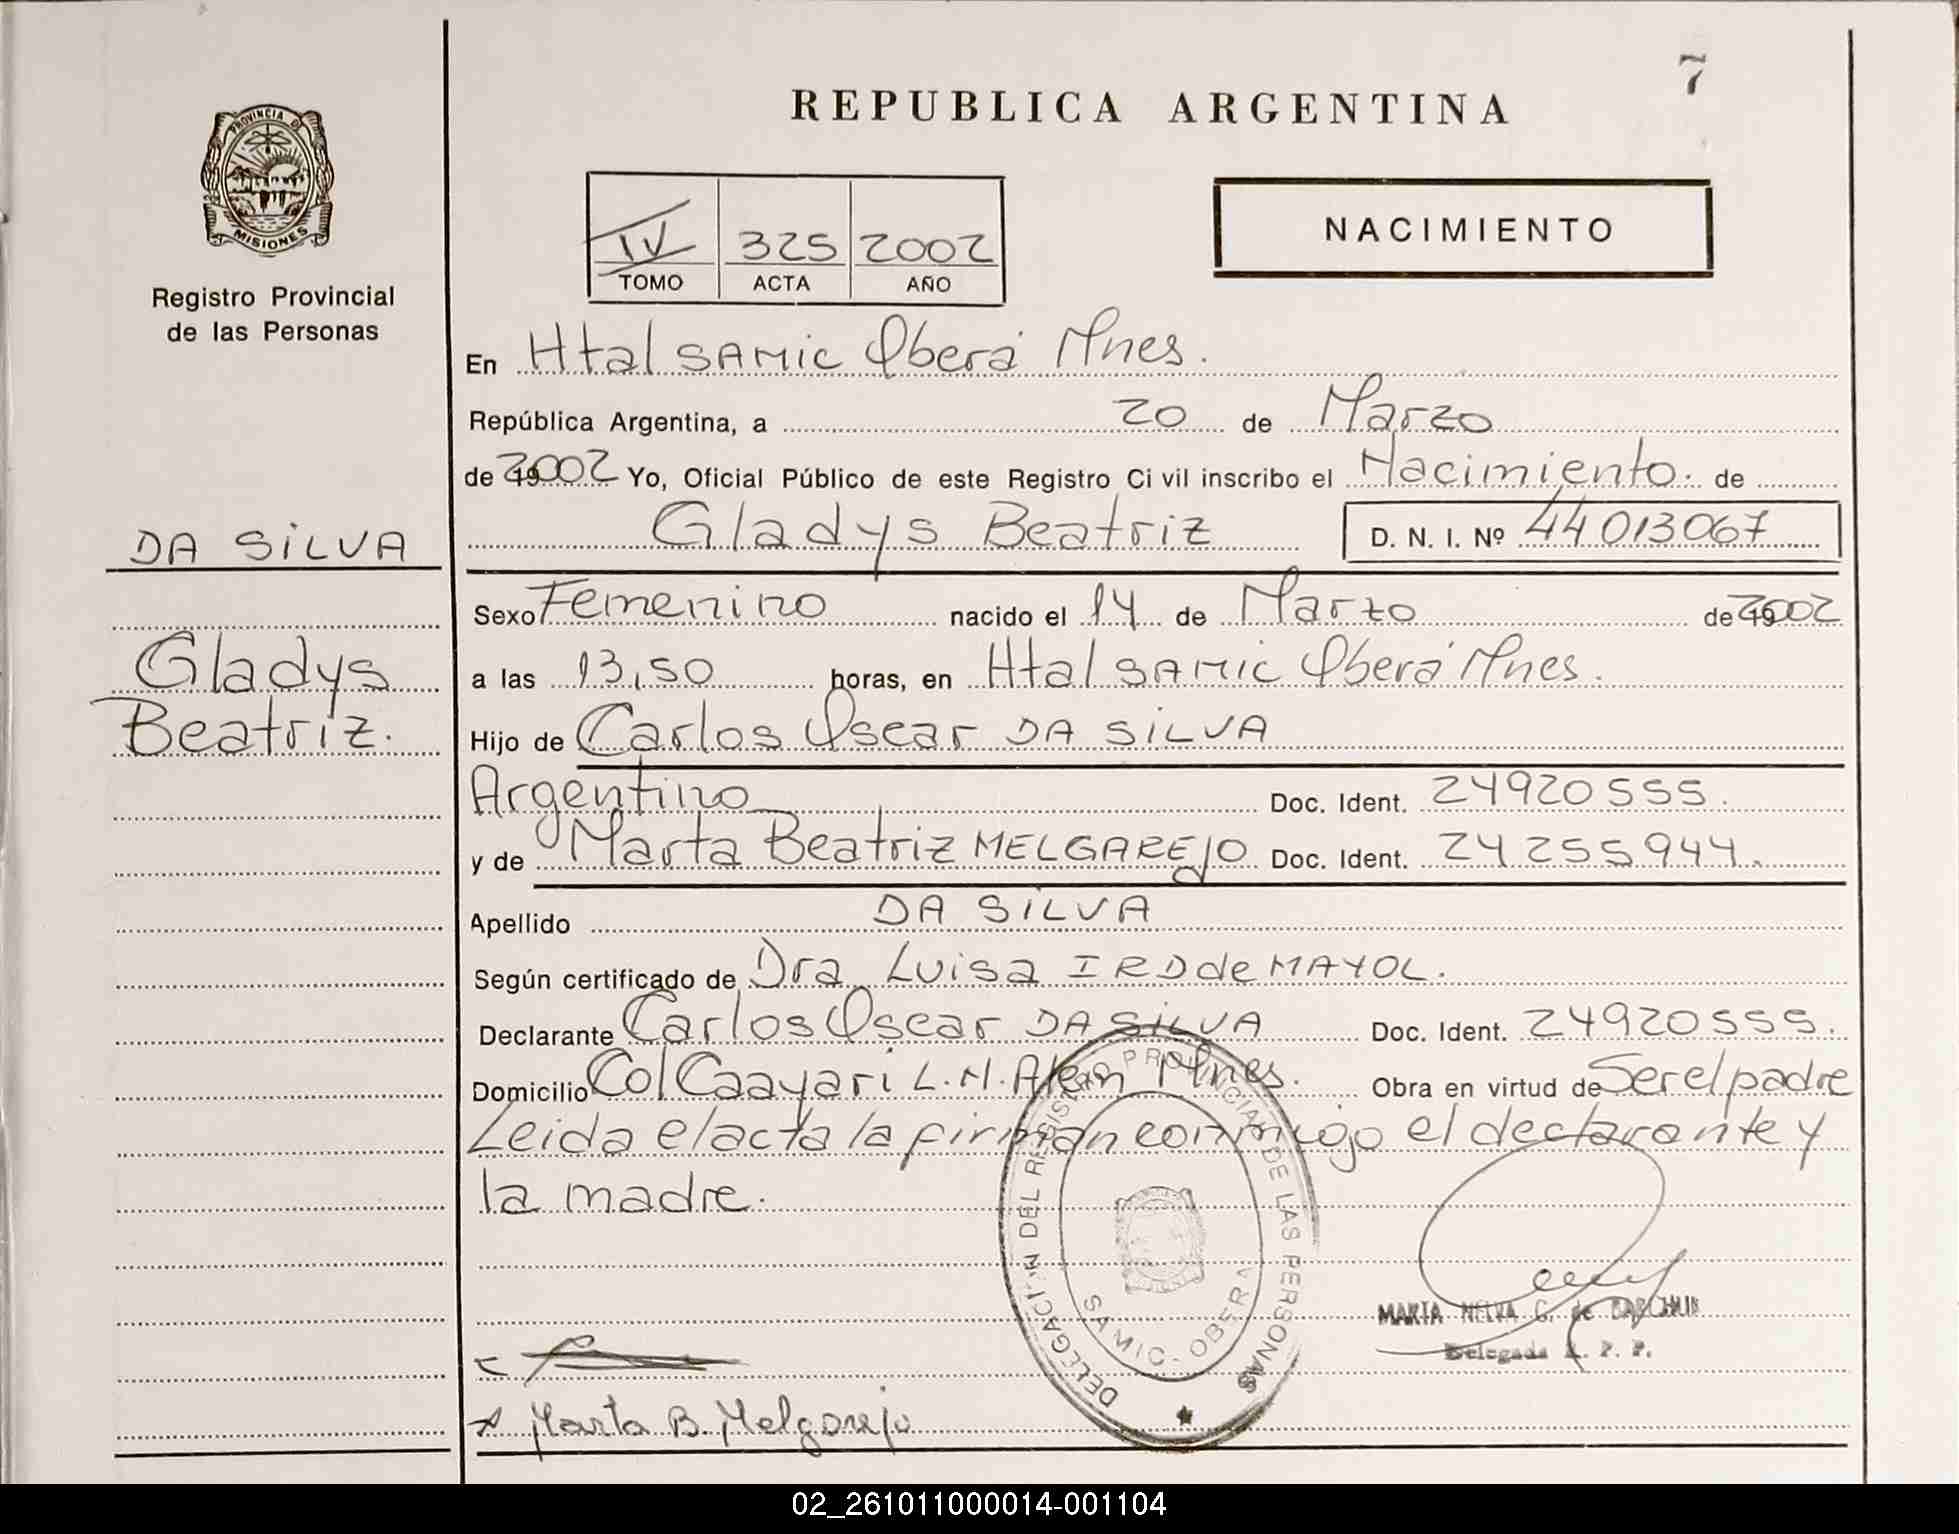 7
REPUBLICA ARGENTINA
PROVINCIA DE
MISIONES
Registro Provincial
de las Personas
IV 325 2002
TOMO ACTA AÑO
NACIMIENTO
En Htal SAMIC Oberá Mnes.
República Argentina, a 20 de Marzo
de 2002 Yo, Oficial Público de este Registro Civil inscribo el Nacimiento. de
Gladys Beatriz D. N. I. Nº 44013067
DA SILVA
Gladys
Beatriz.
Sexo Femenino nacido el 14 de Marzo de 2002
a las 13,50 horas, en Htal SAMIC Oberá Mnes.
Hijo de Carlos Oscar DA SILVA
Argentino Doc. Ident. 24920555.
y de Marta Beatriz MELGAREJO Doc. Ident. 24255944.
Apellido DA SILVA
Según certificado de Dra Luisa IRD de MAYOL.
Declarante Carlos Oscar DA SILVA Doc. Ident. 24920555.
Domicilio Col Caayari L.N. Alem Mnes. Obra en virtud de Ser el padre
Leida el acta la firman conmigo el declarante y
la madre.
DELEGACION DEL REGISTRO PROVINCIAL DE LAS PERSONAS
SAMIC - OBERA
MARTA NELVA C. de
Delegada R. P. P.
Marta B. Melgarejo
02_261011000014-001104